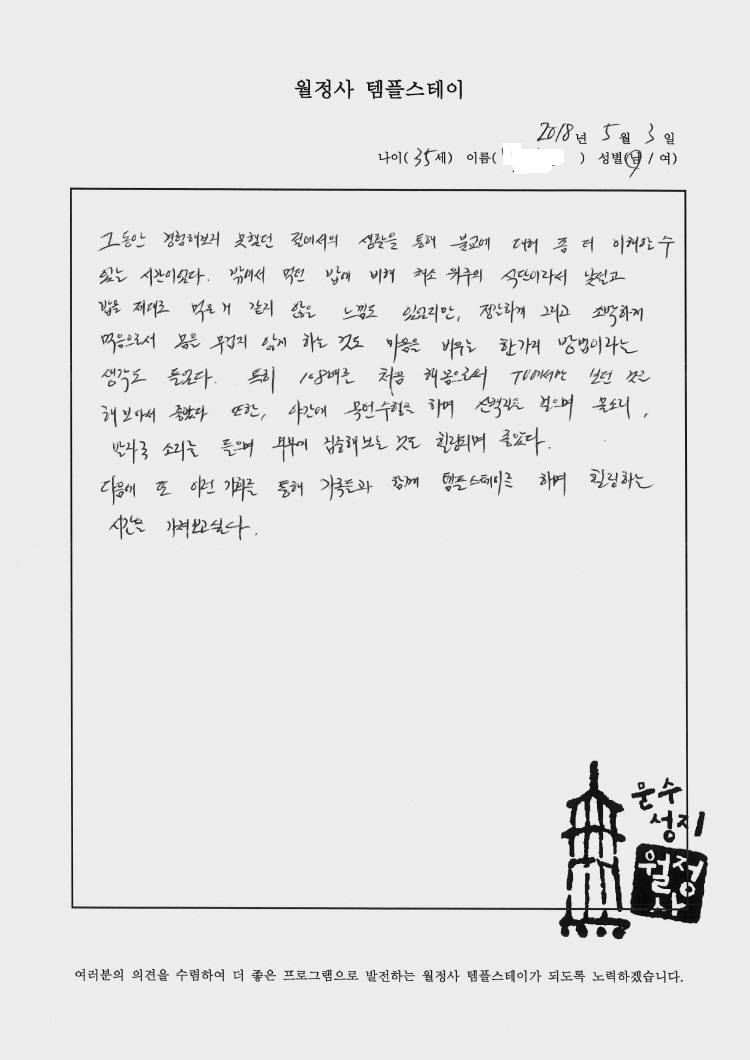 월정사 템플스테이
2018년 5월 3일
나이(35세) 이름( ) 성별(남/여)
그동안 경험해보지 못했던 절에서의 생활을 통해 불교에 대해 좀 더 이해할 수
있는 시간이었다. 밖에서 먹던 밥에 비해 채소 위주의 식단이라서 낯설고
밥을 제대로 먹은 거 같지 않은 느낌도 있었지만, 정갈하게 그리고 소박하게
먹음으로서 몸을 무겁지 않게 하는 것도 마음을 비우는 한가지 방법이라는
생각도 들었다. 특히 108배를 처음 해봄으로써 TV에서만 보던 것을
해보아서 좋았다 또한, 야간에 묵언수행을 하며 산책길을 걸으며 물소리,
발자국 소리를 들으며 집중해보는 것도 힐링되며 좋았다.
다음에 또 이런 기회를 통해 가족들과 함께 템플스테이를 하며 힐링하는
시간을 가져보고싶다.
문수
성지
월정
사
여러분의 의견을 수렴하여 더 좋은 프로그램으로 발전하는 월정사 템플스테이가 되도록 노력하겠습니다.